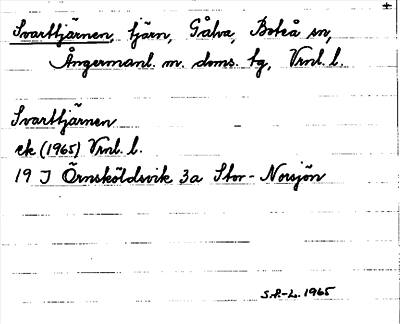 Svarttjärnen, tjärn, Gålva, Boteå sn,
Ångermanl. m. doms. tg, Vrnl. l.
Svarttjärnen
ek (1965) Vrnl. l.
19 J Örnsköldsvik 3a Stor-Norsjön
S.P.-L. 1965